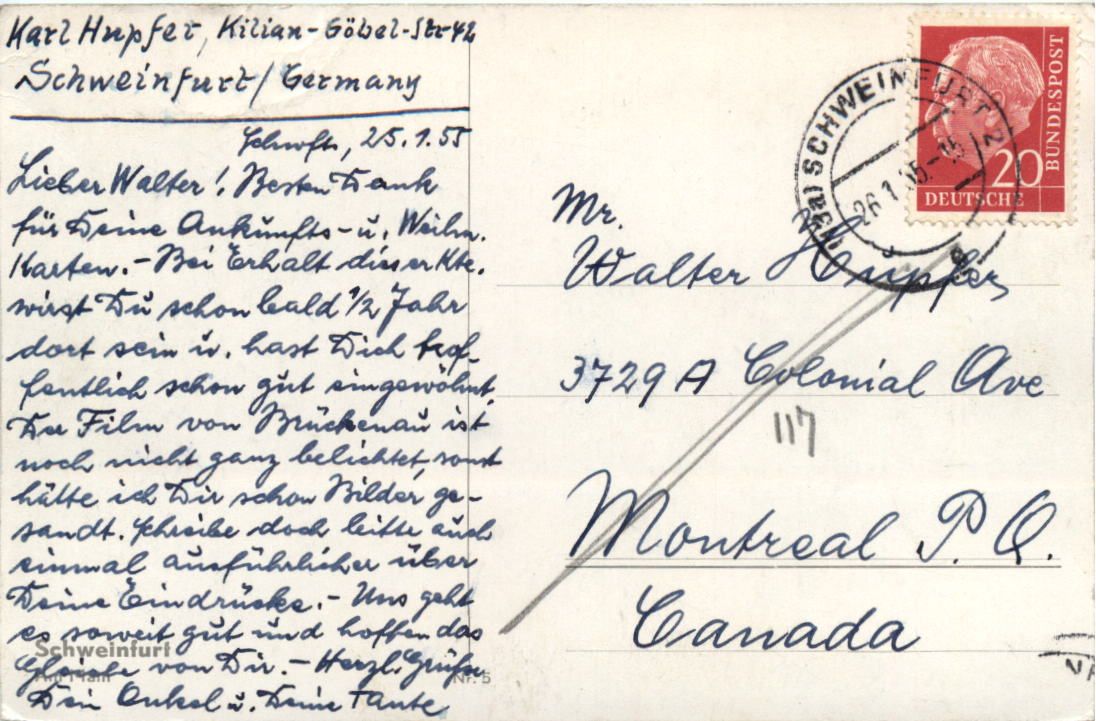 Karl Hupfer, Kilian-Göbel-Str 42
Schweinfurt / Germany
Schwft, 25.1.55
Lieber Walter! Besten Dank
für Deine Ankunfts- u. Weihn.
Karten. - Bei Erhalt dieser Kte.
wirst Du schon bald 1/2 Jahr
dort sein u. hast Dich hof-
fentlich schon gut eingewöhnt.
Der Film von Brückenau ist
noch nicht ganz belichtet, sonst
hätte ich Dir schon Bilder ge-
sandt. Schreibe doch bitte auch
einmal ausführlicher über
Deine Eindrücke. - Uns geht
es soweit gut und hoffen das
Gleiche von Dir. - Herzl. Grüße
Dein Onkel u. Deine Tante
Schweinfurt
Am Main
Nr. 5
SCHWEINFURT 2
26.1.55.-15
20
DEUTSCHE
BUNDESPOST
Mr.
Walter Hupfer
3729 A Colonial Ave
117
Montreal P.Q.
Canada